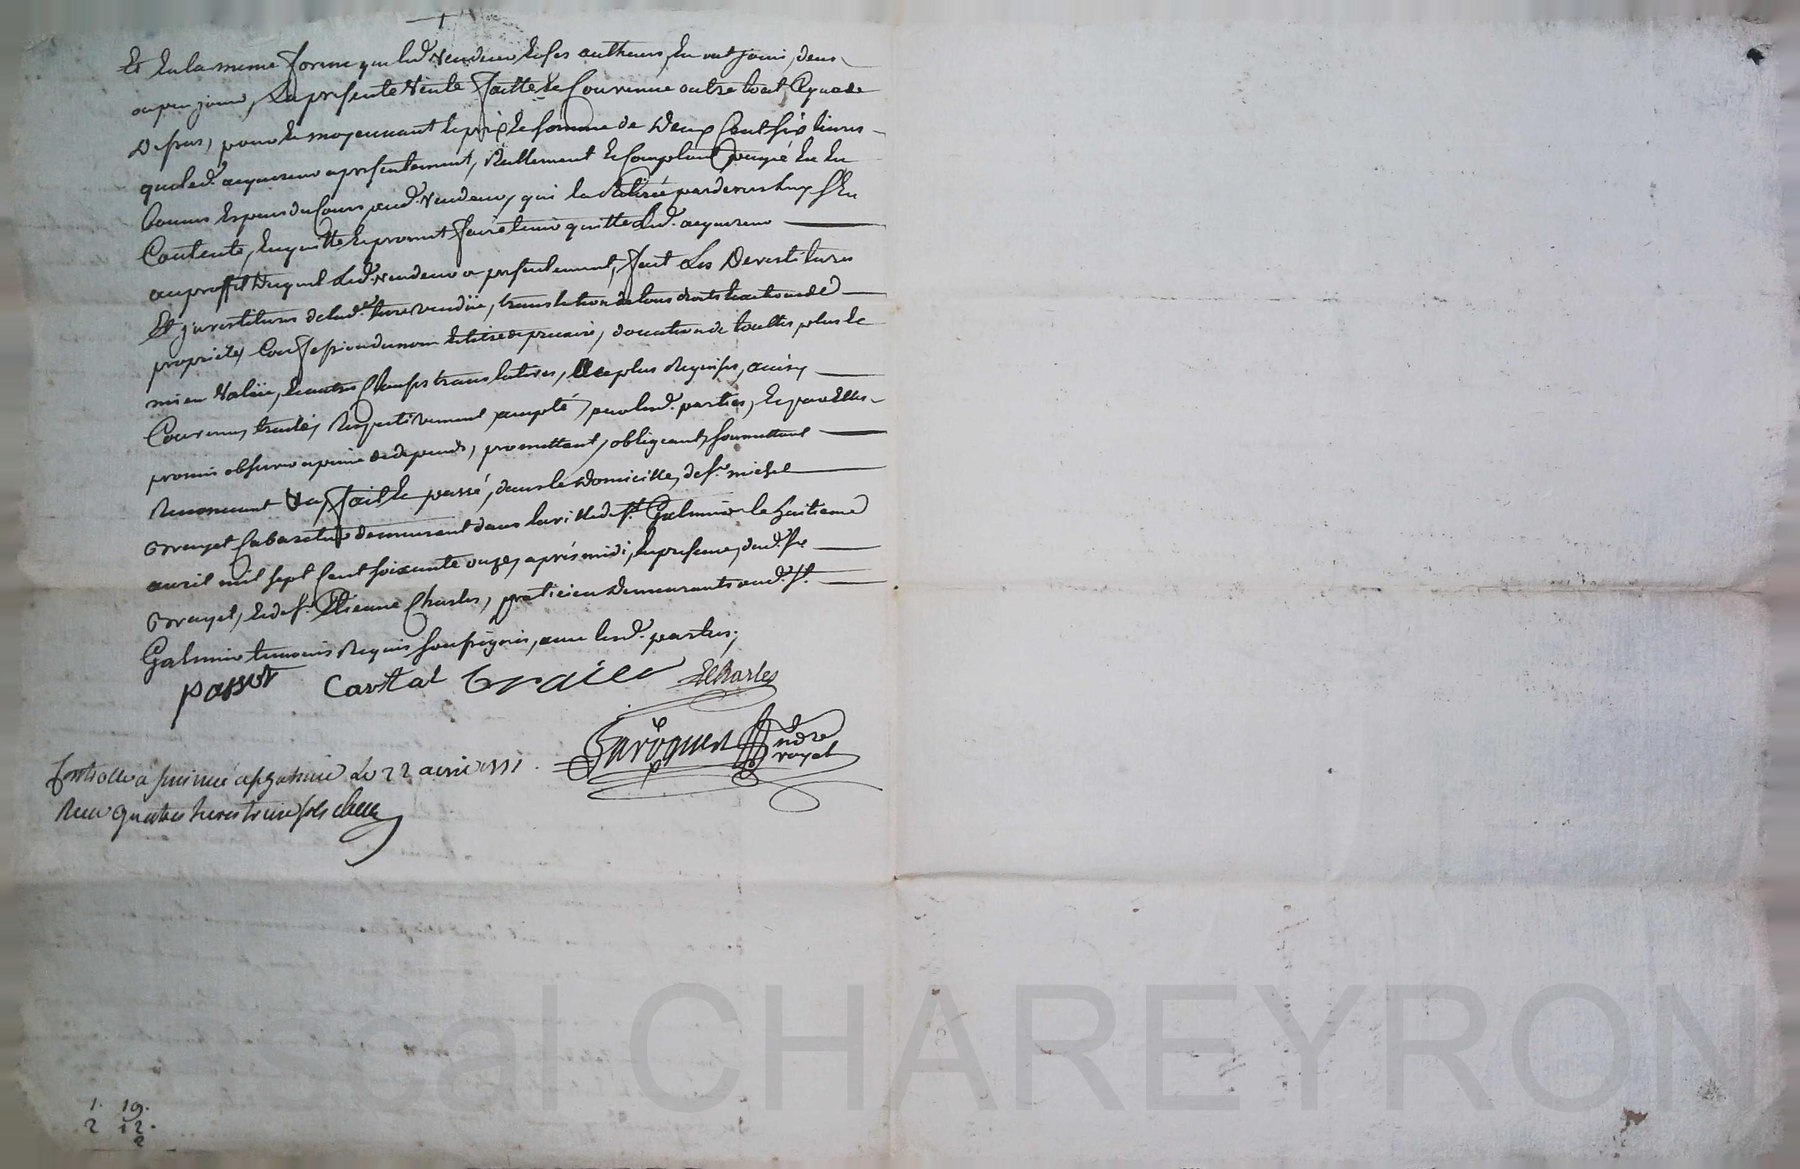 Et en la meme forme que led. vendeur et ses autheurs en ont joui, deu
ou peu jouir, La presente vente faitte et convenue outre tout ce que de
Dessus, pour et moyennant le prix et somme de Deux Cent six livres
que led. acquereur a presentement, réellement et comptant payé en
bonnes especes du cours aud. vendeur, qui la retirée pardevers luy s'en
Contente, en quitte et promet faire tenir quitte led. acquereur
au proffit duquel led. vendeur a presentement, fait les Devestitures
Et jnvestitures de lad. terre vendüe, translation de tous droits et actions de
propriété, Confession du nom et titre de precaire, donation de touttes plus et
mieux valüe, et autres clauses translatives, les plus requises, ainsy
Convenu, traité, respectivement accepté par lesd. parties, et par elles
promis observer a peine de depends, promettant, obligeant, soumettant
Renonceant &a, fait et passé, dans le Domicille, de sr. michel
Grayet Cabaretier demeurant dans la ville de st. Galmier le huitieme
avril mil sept Cent soixante onze, après midi, en presence, dud. sr.
Grayet, et de sr. Etienne Charles, praticien Demeurants aud. st.
Galmier temoins requis soussignés, avec lesd. parties;
passot Cartal Graiet
ECharles
ndre
royal
Controllé à st. Galmier Le 22 avril 1771.
Reçu quatre livres treize sols
1. 19.
2 12.
2
scal CHAREYRON